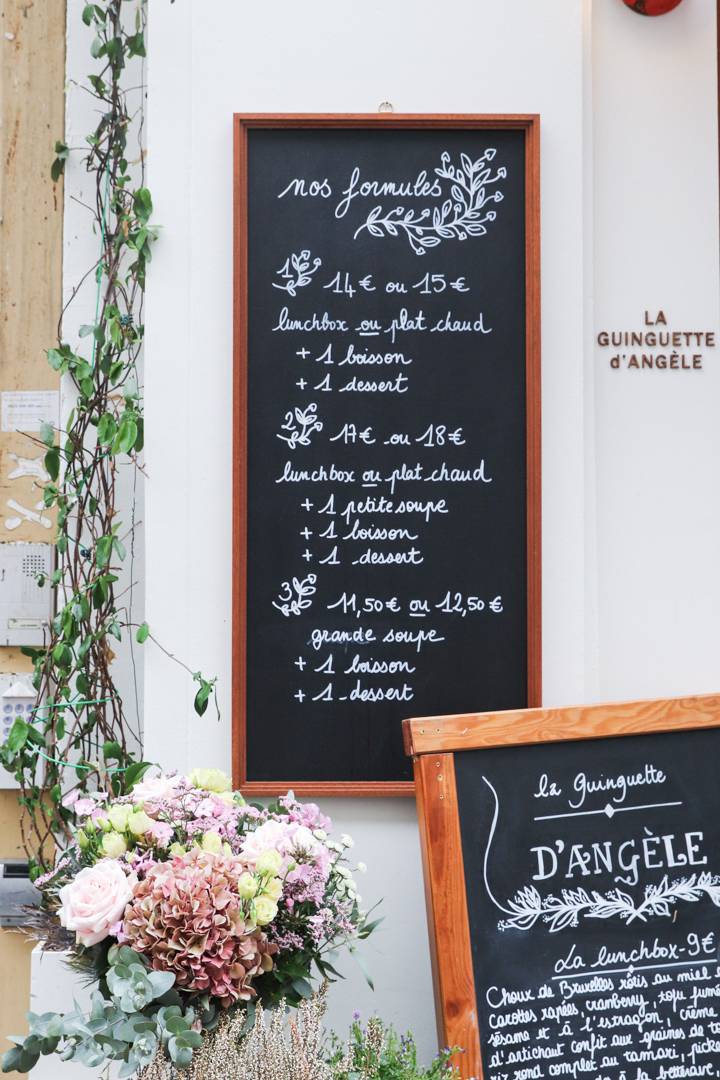 nos formules
1 14€ ou 15€
lunchbox ou plat chaud
+ 1 boisson
+ 1 dessert
2 17€ ou 18€
lunchbox ou plat chaud
+ 1 petite soupe
+ 1 boisson
+ 1 dessert
3 11,50€ ou 12,50€
grande soupe
+ 1 boisson
+ 1 dessert
LA
GUINGUETTE
d'ANGÈLE
la Guinguette
D'ANGÈLE
La lunchbox - 9€
Choux de Bruxelles rôtis au miel
Carottes rapées, cranberry, tofu fumé
sésame et à l'estragon, crème
d'artichaut confit aux graines de
riz rond complet au tamari,
à la betterave,